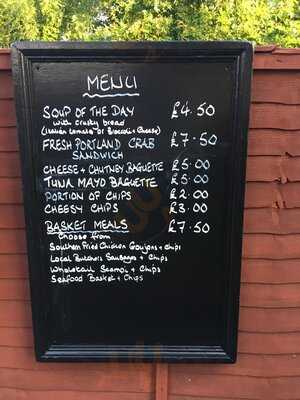 MENU
SOUP OF THE DAY £4.50
with crusty bread
(Italian tomato or Broccoli + Cheese)
FRESH PORTLAND CRAB £7.50
SANDWICH
CHEESE + CHUTNEY BAGUETTE £5.00
TUNA MAYO BAGUETTE £5.00
PORTION OF CHIPS £2.00
CHEESY CHIPS £3.00
BASKET MEALS £7.50
Choose from
Southern Fried Chicken Goujons + Chips
Local Butchers Sausages + Chips
Wholetail Scampi + Chips
Seafood Basket + Chips